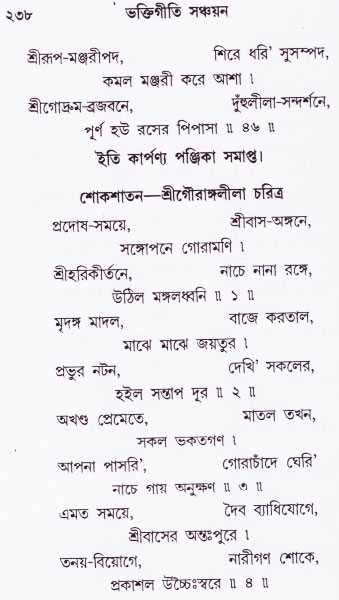 ২৩৮ ভক্তিগীতি সঞ্চয়ন
শ্রীরূপ-মঞ্জরীপদ, শিরে ধরি’ সুসম্পদ,
কমল মঞ্জরী করে আশা ।
শ্রীগোদ্রুম-ব্রজবনে, দুঁহুলীলা-সন্দর্শনে,
পূর্ণ হউ রসের পিপাসা ॥ ৪৬ ॥
ইতি কার্পণ্য পঞ্জিকা সমাপ্ত।
শোকশাতন—শ্রীগৌরাঙ্গলীলা চরিত্র
প্রদোষ-সময়ে, শ্রীবাস-অঙ্গনে,
সঙ্গোপনে গোরামণি ।
শ্রীহরিকীর্তনে, নাচে নানা রঙ্গে,
উঠিল মঙ্গলধ্বনি ॥ ১ ॥
মৃদঙ্গ মাদল, বাজে করতাল,
মাঝে মাঝে জয়তুর ।
প্রভুর নটন, দেখি’ সকলের,
হইল সন্তাপ দূর ॥ ২ ॥
অখণ্ড প্রেমেতে, মাতল তখন,
সকল ভকতগণ ।
আপনা পাসরি’, গোরাচাঁদে ঘেরি’
নাচে গায় অনুক্ষণ ॥ ৩ ॥
এমত সময়ে, দৈব ব্যাধিযোগে,
শ্রীবাসের অন্তঃপুরে ।
তনয়-বিয়োগে, নারীগণ শোকে,
প্রকাশল উচ্চৈঃস্বরে ॥ ৪ ॥